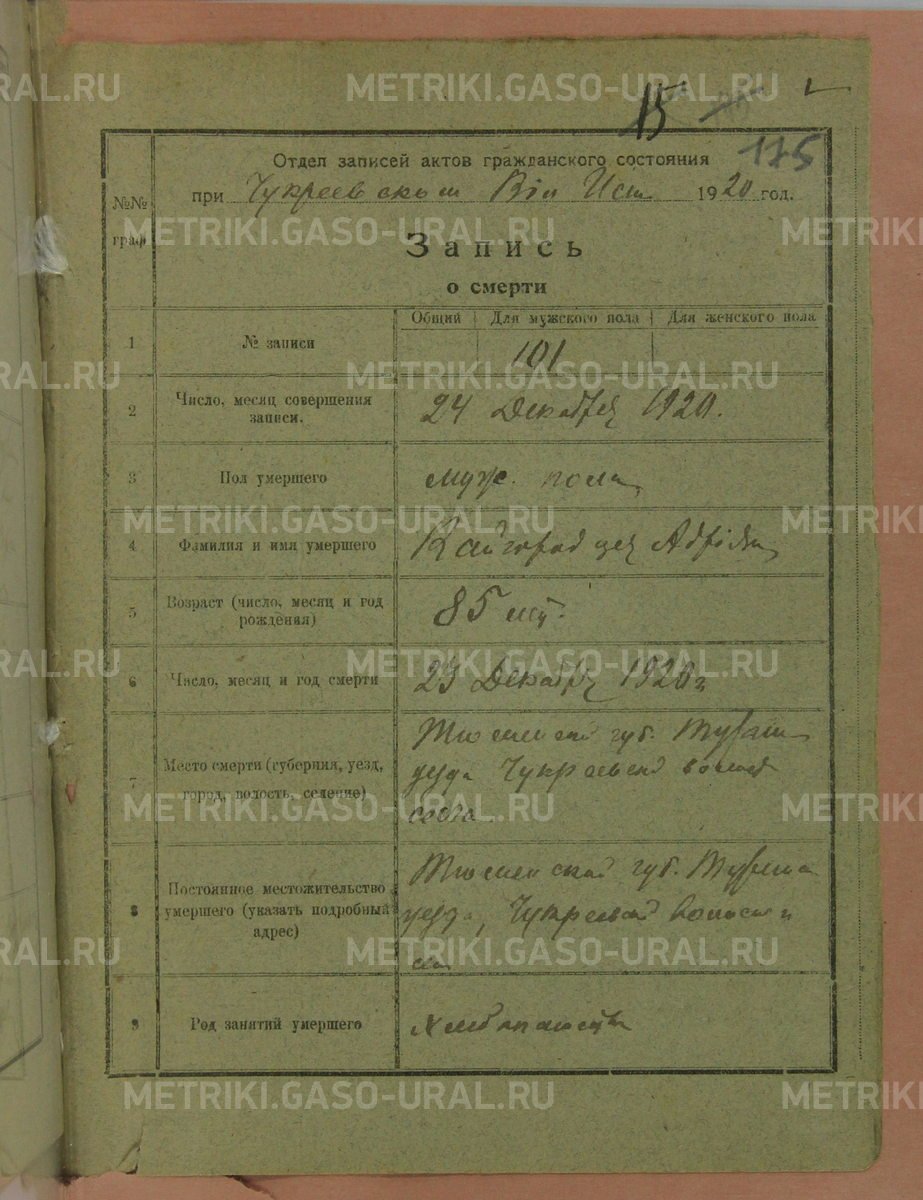 METRIKI.GASO-URAL.RU
15
175
Отдел записей актов гражданского состояния
при Чукреевском Вол Исп 1920 год.
№№ граф
Запись
о смерти
Общий Для мужского пола Для женского пола
1 № записи 101
2 Число, месяц совершения записи. 24 Декабря 1920.
3 Пол умершего муж. пола
4 Фамилия и имя умершего Кайгородцев
5 Возраст (число, месяц и год рождения) 85 лет.
6 Число, месяц и год смерти 23 Декабря 1920 г
7 Место смерти (губерния, уезд, город, волость, селение) Тюменской губ.
уезда Чукреевской
8 Постоянное местожительство умершего (указать подробный адрес) Тюменской губ.
уезда, Чукреевской волости
9 Род занятий умершего